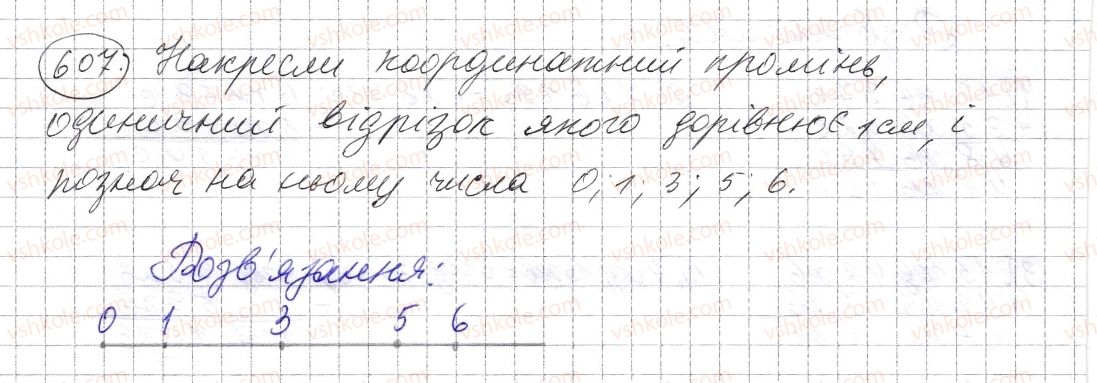 607. Накресли координатний промінь,
одиничний відрізок якого дорівнює 1см, і
познач на ньому числа 0; 1; 3; 5; 6.
Розв'язання:
0 1 3 5 6